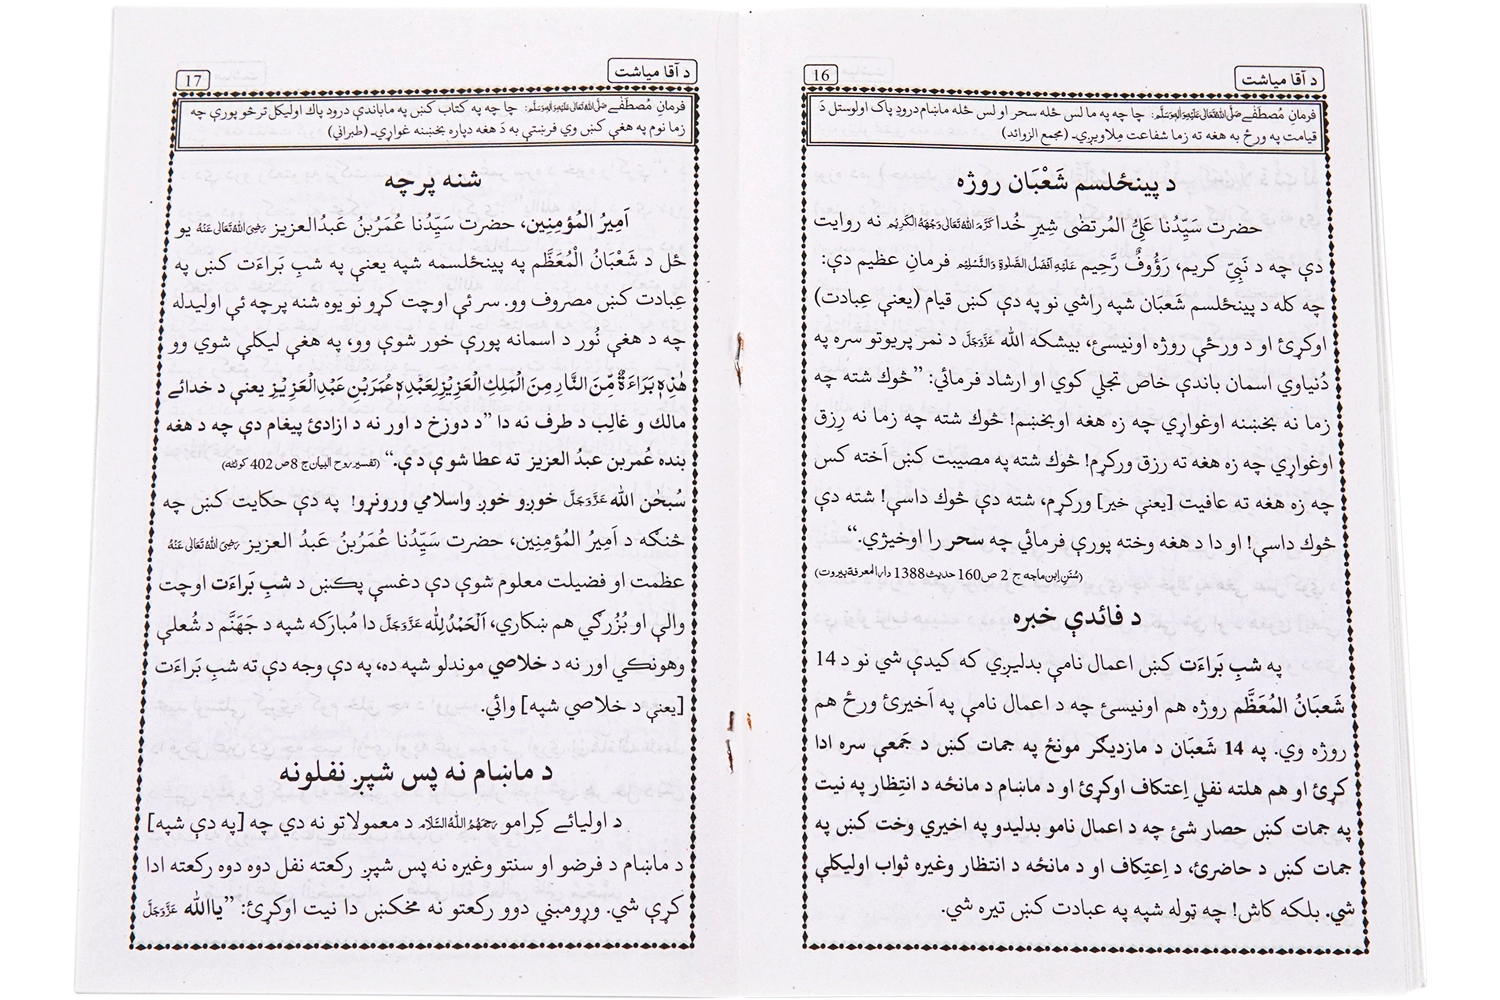 د آقا میاشت
16
فرمانِ مُصطَفٰے صَلَّی اللّٰہُ تَعَالٰی عَلَیْہِ وَاٰلِہٖ وَسَلَّم: چا چه په ما لس ځله سحر او لس ځله ماښام درودِ پاک اولوستل دَ
قیامت په ورځ به هغه ته زما شفاعت مِلاویږي۔ (مجمع الزوائد)
د پینځلسم شَعْبَان روژه
حضرت سَیِّدُنا عَلِیُّ المُرتَضٰی شیرِ خُدا کَرَّمَ اللّٰہُ تَعَالٰی وَجْہَہُ الْکَرِیْم نه روایت
دې چه د نَبِیّ کریم، رَؤُوفٌ رَّحِیم عَلَیْہِ اَفْضَلُ الصَّلٰوۃِ وَالتَّسْلِیْم فرمانِ عظیم دې:
چه کله د پینځلسم شَعبَان شپه راشي نو په دې کښ قیام (یعنې عِبادت)
اوکړئ او د ورځې روژه اونیسئ، بیشکه الله عَزَّوَجَلَّ د نمر پریوتو سره په
دُنیاوي اسمان باندې خاص تجلي کوي او ارشاد فرمائي: ”څوك شته چه
زما نه بخښنه اوغواړي چه زه هغه اوبخښم! څوك شته چه زما نه رِزق
اوغواړي چه زه هغه ته رزق ورکړم! څوك شته په مصیبت کښ اَخته کس
چه زه هغه ته عافیت [یعنې خیر] ورکړم، شته دې څوك داسې! شته دې
څوك داسې! او دا د هغه وخته پورې فرمائي چه سحر را اوخیژي.“
(سُنَنِ اِبن ماجه ج 2 ص 160 حدیث 1388 دار المعرفة بیروت)
د فائدې خبره
په شبِ بَراءَت کښ اعمال نامې بدلیږي که کیدې شي نو د 14
شَعبَانُ المُعَظَّم روژه هم اونیسئ چه د اعمال نامې په اَخیرئ ورځ هم
روژه وي. په 14 شَعبَان د مازدیګر مونځ په جمات کښ د جَمعې سره ادا
کړئ او هم هلته نفلي اِعتکاف اوکړئ او د ماښام د مانځه د انتِظار په نیت
په جمات کښ حصار شئ چه د اعمال نامو بدلیدو په اخیري وخت کښ په
جمات کښ د حاضرئ، د اِعتِکاف او د مانځه د انتظار وغیره ثواب اولیکلې
شي. بلکه کاش! چه ټوله شپه په عبادت کښ تیره شي.
د آقا میاشت
17
فرمانِ مُصطَفٰے صَلَّی اللّٰہُ تَعَالٰی عَلَیْہِ وَاٰلِہٖ وَسَلَّم: چا چه په کتاب کښ په ما باندې درود پاك اولیکل ترڅو پورې چه
زما نوم په هغې کښ وي فرښتې به دَ هغه دپاره بخښنه غواړي۔ (طبراني)
شنه پرچه
اَمِیرُ المُؤمِنِین، حضرت سَیِّدُنا عُمَر بِن عَبدُ العزیز رَضِیَ اللّٰہُ تَعَالٰی عَنْہُ یو
ځل د شَعْبَانُ الْمُعَظَّم په پینځلسمه شپه یعنې په شبِ بَراءَت کښ په
عِبادت کښ مصروف وو. سر ئې اوچت کړو نو یوه شنه پرچه ئې اولیدله
چه د هغې نُور د اسمانه پورې خور شوې وو، په هغې لیکلې شوي وو
هٰذِهٖ بَرَاءَةٌ مِّنَ النَّارِ مِنَ الْمَلِكِ الْعَزِيْزِ لِعَبْدِهٖ عُمَرَ بْنِ عَبْدِ الْعَزِيْز یعنې د خدائے
مالك و غالِب د طرف نه دا ”د دوزخ د اور نه د ازادئ پیغام دې چه د هغه
بنده عُمر بن عبدُ العزیز ته عطا شوې دې.“ (تفسیر روح البیان ج 8 ص 402 کوئټه)
سُبحٰن الله عَزَّوَجَلَّ خوږو خوږ واسلامي ورونړو! په دې حکایت کښ چه
څنګه د اَمِیرُ المُؤمِنِین، حضرت سَیِّدُنا عُمَرُ بنُ عَبدُ العزیز رَضِیَ اللّٰہُ تَعَالٰی عَنْہُ
عظمت او فضیلت معلوم شوې دې دغسې پکښ د شبِ بَراءَت اوچت
والې او بُزُرګي هم ښکاري، اَلْحَمْدُ لِلّٰه عَزَّوَجَلَّ دا مُبارَکه شپه د جَهَنَّم د شُعلې
وهونکي اور نه د خلاصي موندلو شپه ده، په دې وجه دې ته شبِ بَراءَت
[یعنې د خلاصي شپه] وائي.
د ماښام نه پس شپږ نفلونه
د اولیائے کِرامو رَحِمَہُمُ اللّٰہُ السَّلَام د معمولاتو نه دي چه [په دې شپه]
د ماښام د فرضو او سنتو وغیره نه پس شپږ رکعته نفل دوه دوه رکعته ادا
کړې شي. وړومبني دوو رکعتو نه مخکښ دا نیت اوکړئ: ”یاالله عَزَّوَجَلَّ